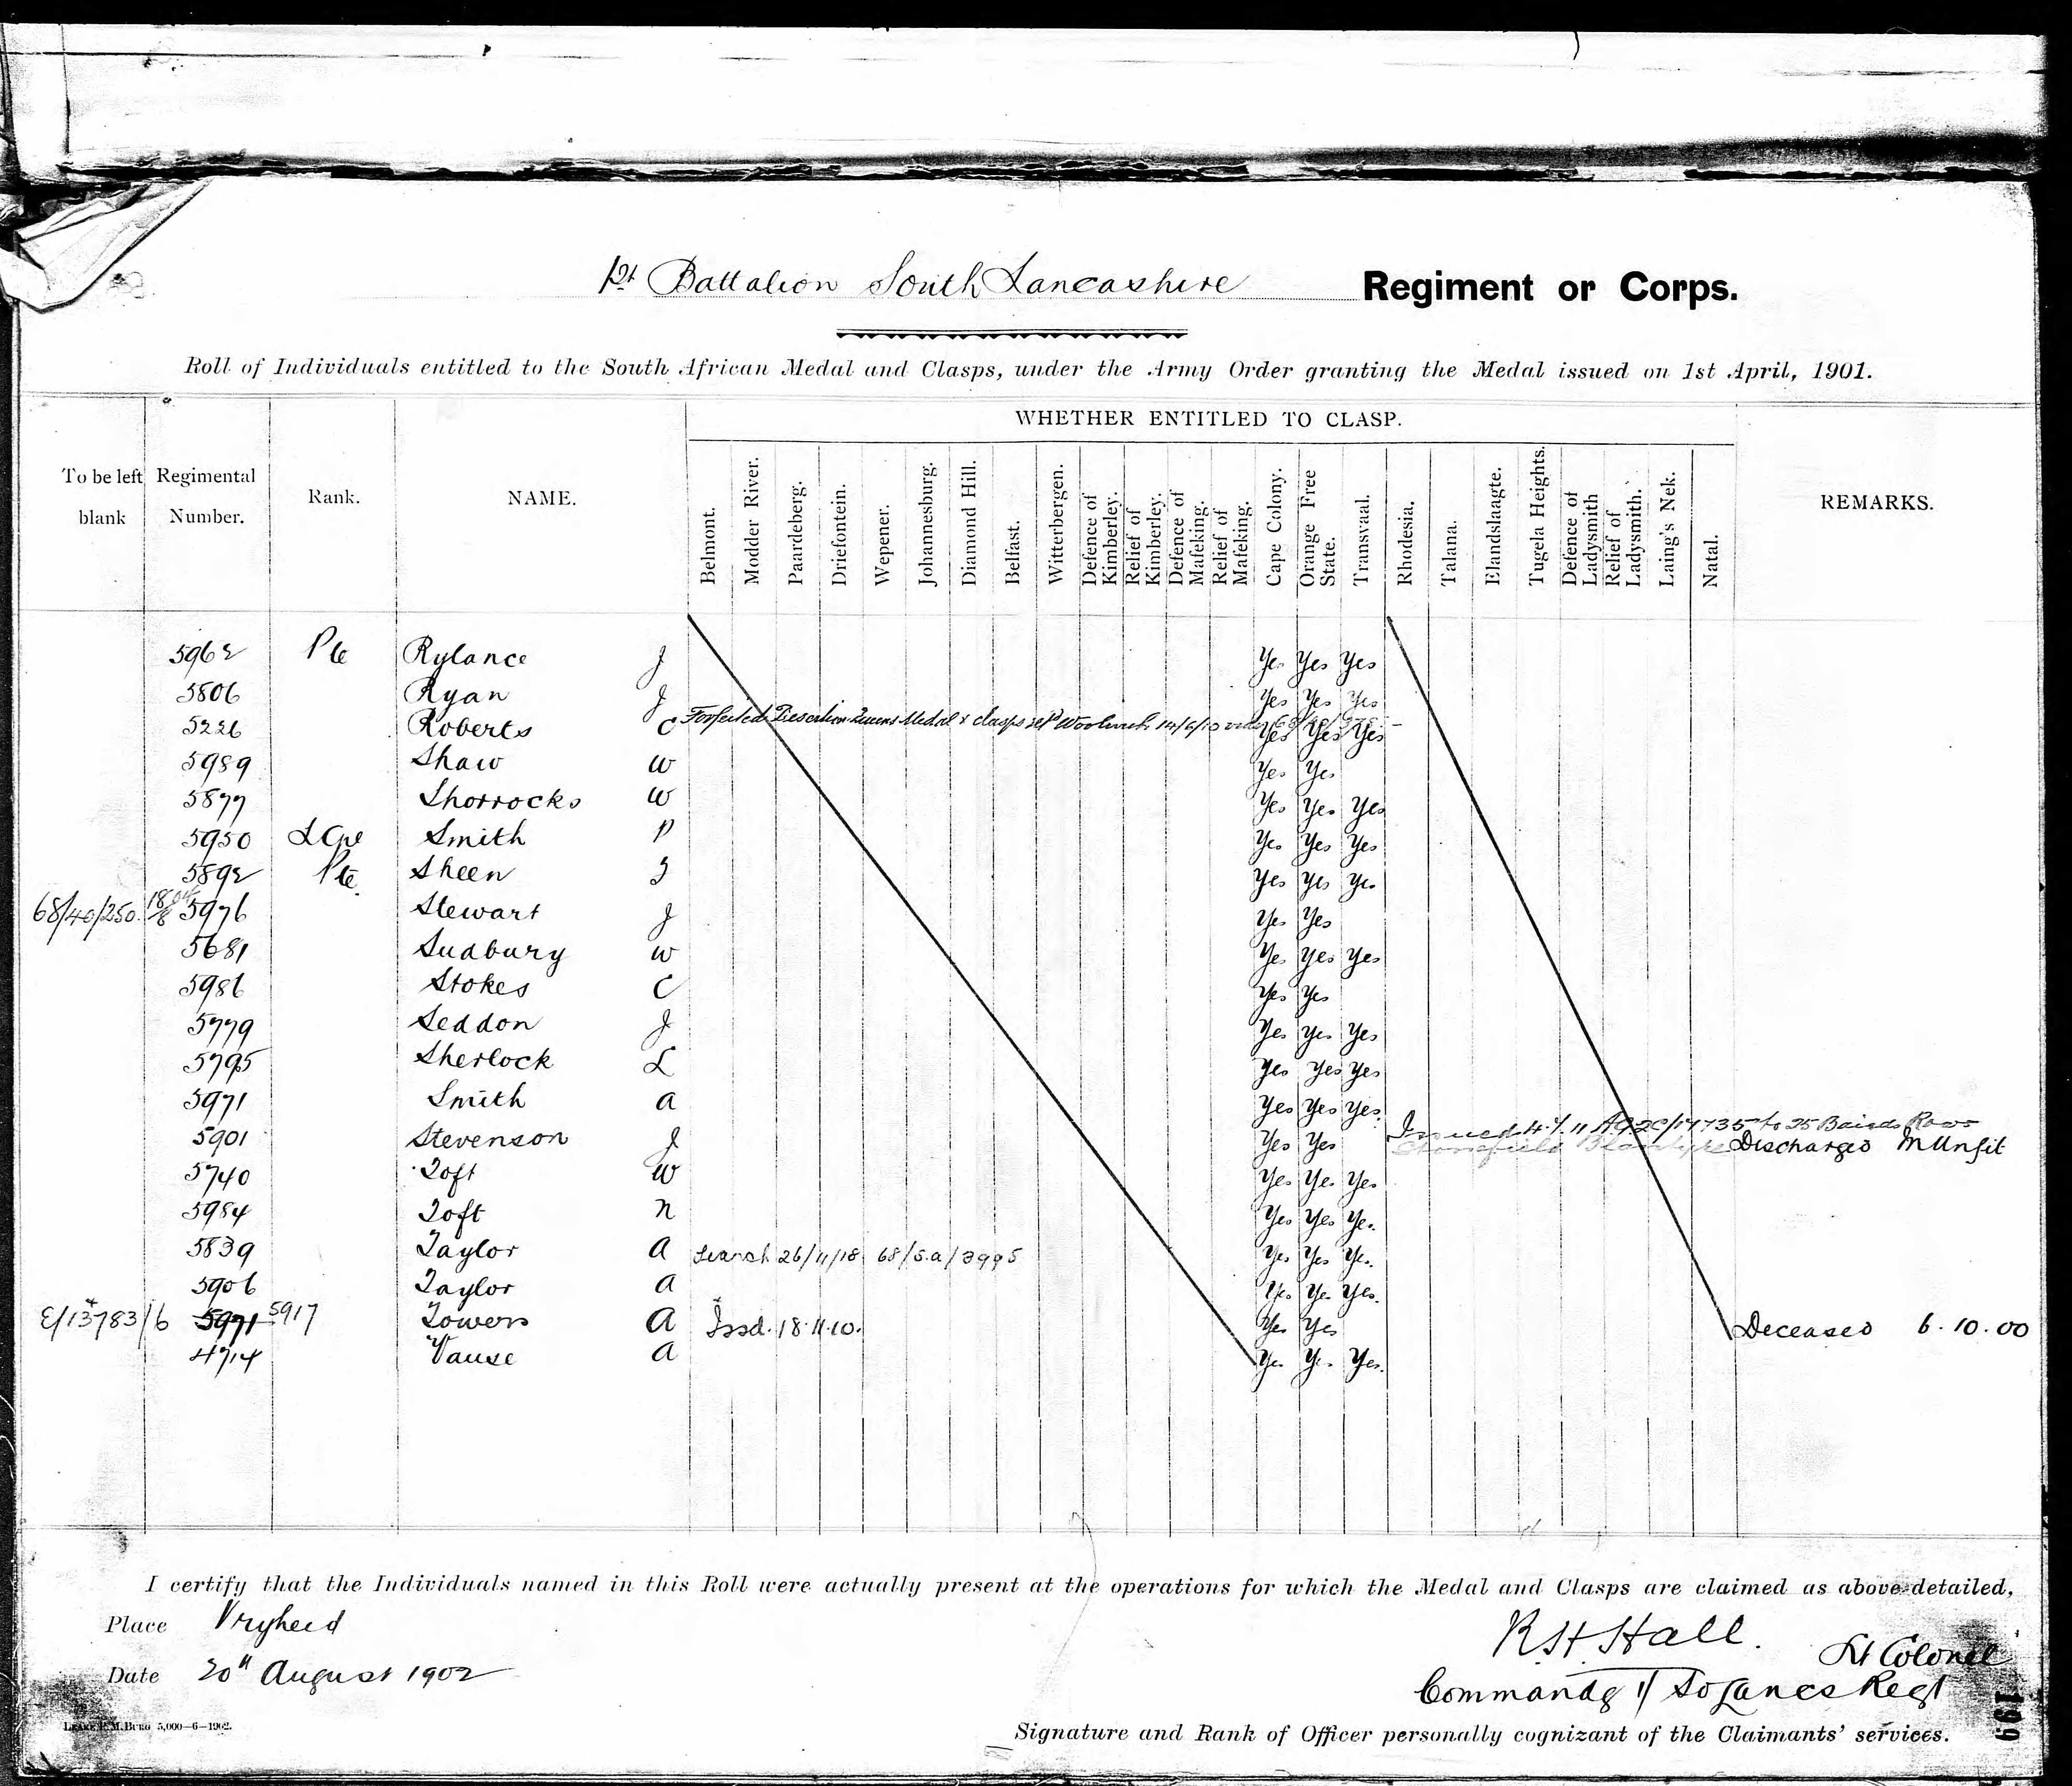 1st Battalion South Lancashire Regiment or Corps.
Roll of Individuals entitled to the South African Medal and Clasps, under the Army Order granting the Medal issued on 1st April, 1901.
WHETHER ENTITLED TO CLASP.
To be left blank
Regimental Number.
Rank.
NAME.
Belmont.
Modder River.
Paardeberg.
Driefontein.
Wepener.
Johannesburg.
Diamond Hill.
Belfast.
Witterbergen.
Defence of Kimberley.
Relief of Kimberley.
Defence of Mafeking.
Relief of Mafeking.
Cape Colony.
Orange Free State.
Transvaal.
Rhodesia.
Talana.
Elandslaagte.
Tugela Heights.
Defence of Ladysmith
Relief of Ladysmith.
Laing's Nek.
Natal.
REMARKS.
5962 Pte Rylance J Yes Yes Yes
5806 Ryan J Yes Yes Yes
5226 Roberts C Forfeited Desertion Queens Medal & clasps Woolwich 14/6/10 Yes Yes Yes
5989 Shaw W Yes Yes
5877 Shorrocks W Yes Yes Yes
5950 LCpl Smith P Yes Yes Yes
5892 Pte Sheen J Yes Yes Yes
68/40/250 5976 Stewart J Yes Yes
5681 Sudbury W Yes Yes Yes
5986 Stokes C Yes Yes
5779 Seddon J Yes Yes Yes
5795 Sherlock L Yes Yes Yes
5971 Smith A Yes Yes Yes
5901 Stevenson J Yes Yes Issued 4.7.11 to 25 Bairds Rows Stonefield Blantyre Discharged M Unfit
5740 Toft W Yes Yes Yes
5984 Toft N Yes Yes Yes
5839 Taylor A Search 26/11/18 68/S.a/3995 Yes Yes Yes
5906 Taylor A Yes Yes Yes.
E/13783/6 5971 5917 Towers A Issd. 18.11.10. Yes Yes Deceased 6.10.00
4714 Vause A Yes Yes Yes.
I certify that the Individuals named in this Roll were actually present at the operations for which the Medal and Clasps are claimed as above-detailed,
Place Vryheid
R.H. Hall. Lt Colonel
Date 20th August 1902
Commandg 1/ So Lancs Regt
5,000—6—1902.
Signature and Rank of Officer personally cognizant of the Claimants' services.
199